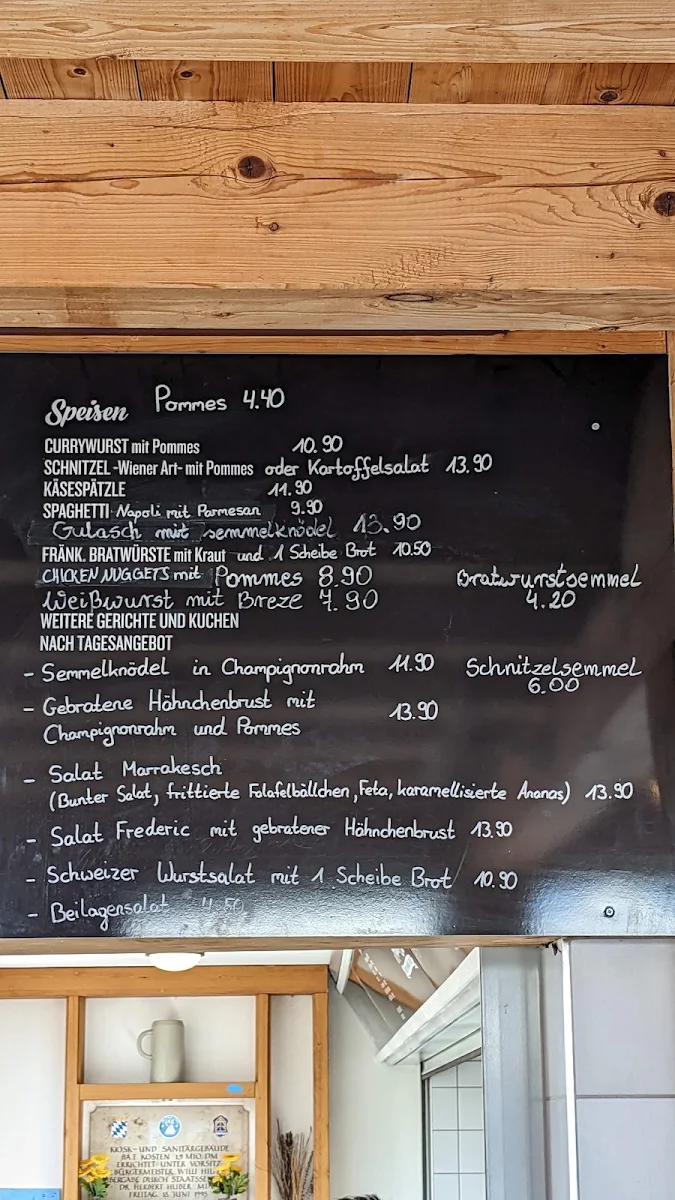 Speisen Pommes 4.40
CURRYWURST mit Pommes 10.90
SCHNITZEL -Wiener Art- mit Pommes oder Kartoffelsalat 13.90
KÄSESPÄTZLE 11.90
SPAGHETTI Napoli mit Parmesan 9.90
Gulasch mit semmelknödel 13.90
FRÄNK. BRATWÜRSTE mit Kraut und 1 Scheibe Brot 10.50
CHICKEN NUGGETS mit Pommes 8.90
Bratwurstsemmel
Weißwurst mit Breze 7.90
4.20
WEITERE GERICHTE UND KUCHEN
NACH TAGESANGEBOT
- Semmelknödel in Champignonrahm 11.90
Schnitzelsemmel
6.00
- Gebratene Hähnchenbrust mit
Champignonrahm und Pommes 13.90
- Salat Marrakesch
(Bunter Salat, frittierte Falafelbällchen, Feta, karamellisierte Ananas) 13.90
- Salat Frederic mit gebratener Hähnchenbrust 13.90
- Schweizer Wurstsalat mit 1 Scheibe Brot 10.90
- Beilagensalat 4.50
KIOSK- UND SANITÄRGEBÄUDE
KOSTEN 1,9 MIO. DM
ERRICHTET UNTER VORSITZ
BÜRGERMEISTER WILLI
DURCH STAATSSE
DR. HERBERT HUBER
FREITAG, 16. JUNI 1995